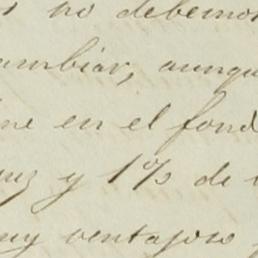 no debemos
cambiar, aunqu
en el fond
y 1% de
muy ventajoso